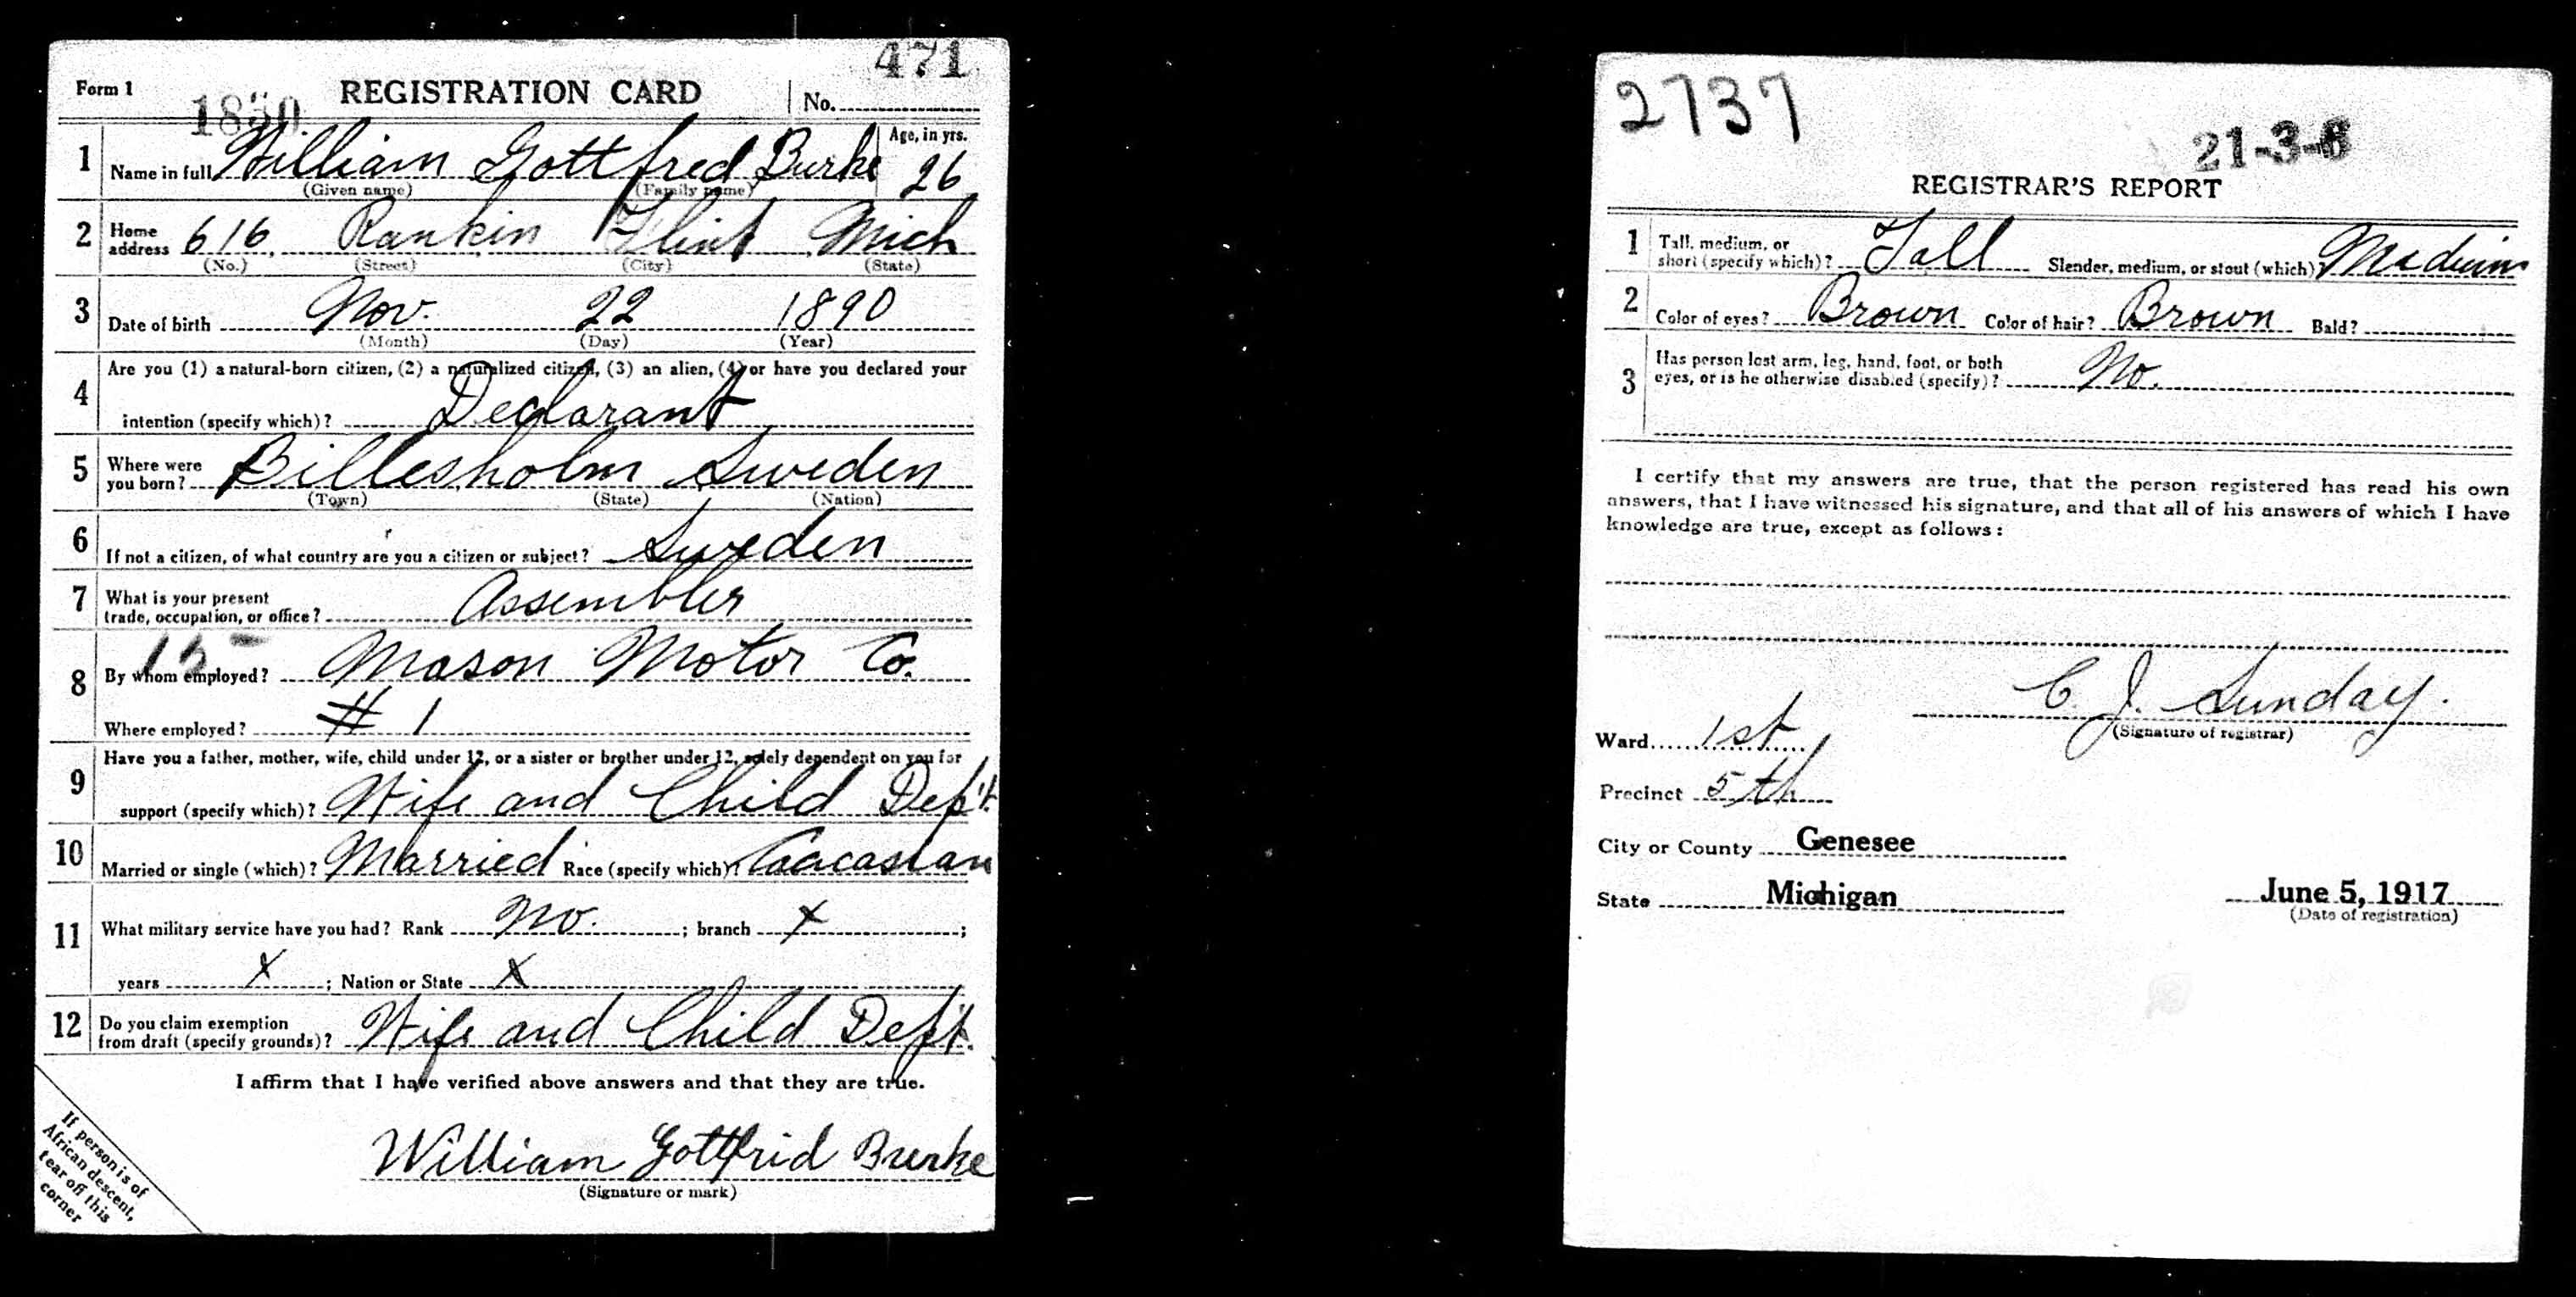 471
Form 1 REGISTRATION CARD No.
1850
1 Name in full William Gottfred Burke Age, in yrs. 26
(Given name) (Family name)
2 Home address 616 Rankin Flint Mich
(No.) (Street) (City) (State)
3 Date of birth Nov. 22 1890
(Month) (Day) (Year)
4 Are you (1) a natural-born citizen, (2) a naturalized citizen, (3) an alien, (4) or have you declared your
intention (specify which)? Declarant
5 Where were you born? Billesholm Sweden
(Town) (State) (Nation)
6 If not a citizen, of what country are you a citizen or subject? Sweden
7 What is your present trade, occupation, or office? Assembler
8 By whom employed? Mason Motor Co.
Where employed? # 1
9 Have you a father, mother, wife, child under 12, or a sister or brother under 12, solely dependent on you for
support (specify which)? Wife and Child Dep't.
10 Married or single (which)? Married Race (specify which)? Cacasian
11 What military service have you had? Rank No. ; branch X ;
years X ; Nation or State X
12 Do you claim exemption from draft (specify grounds)? Wife and Child Dep't.
I affirm that I have verified above answers and that they are true.
William Gottfrid Burke
(Signature or mark)
If person is of
African descent,
tear off this
corner
2737
21-3-6
REGISTRAR'S REPORT
1 Tall, medium, or short (specify which)? Tall Slender, medium, or stout (which)? Medium
2 Color of eyes? Brown Color of hair? Brown Bald?
3 Has person lost arm, leg, hand, foot, or both eyes, or is he otherwise disabled (specify)? No.
I certify that my answers are true, that the person registered has read his own
answers, that I have witnessed his signature, and that all of his answers of which I have
knowledge are true, except as follows:
C. J. Sunday.
(Signature of registrar)
Ward 1st
Precinct 5th
City or County Genesee
State Michigan June 5, 1917
(Date of registration)